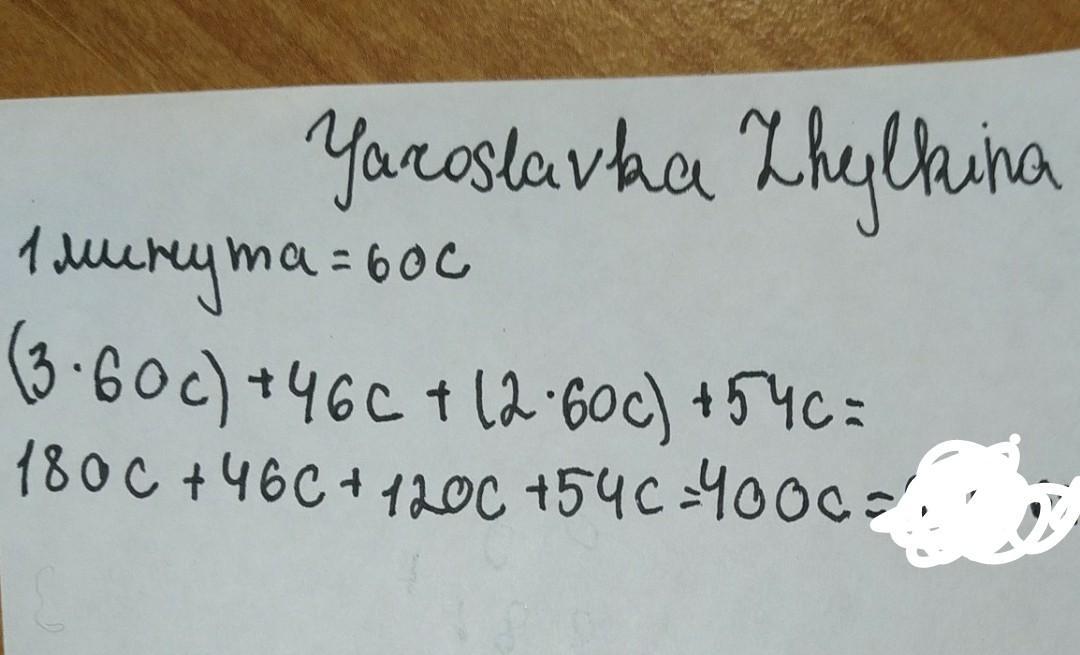 Yaroslavka Zhylkina
1 минута = 60с
(3·60с) + 46с + (2·60с) + 54с =
180с + 46с + 120с + 54с = 400с =